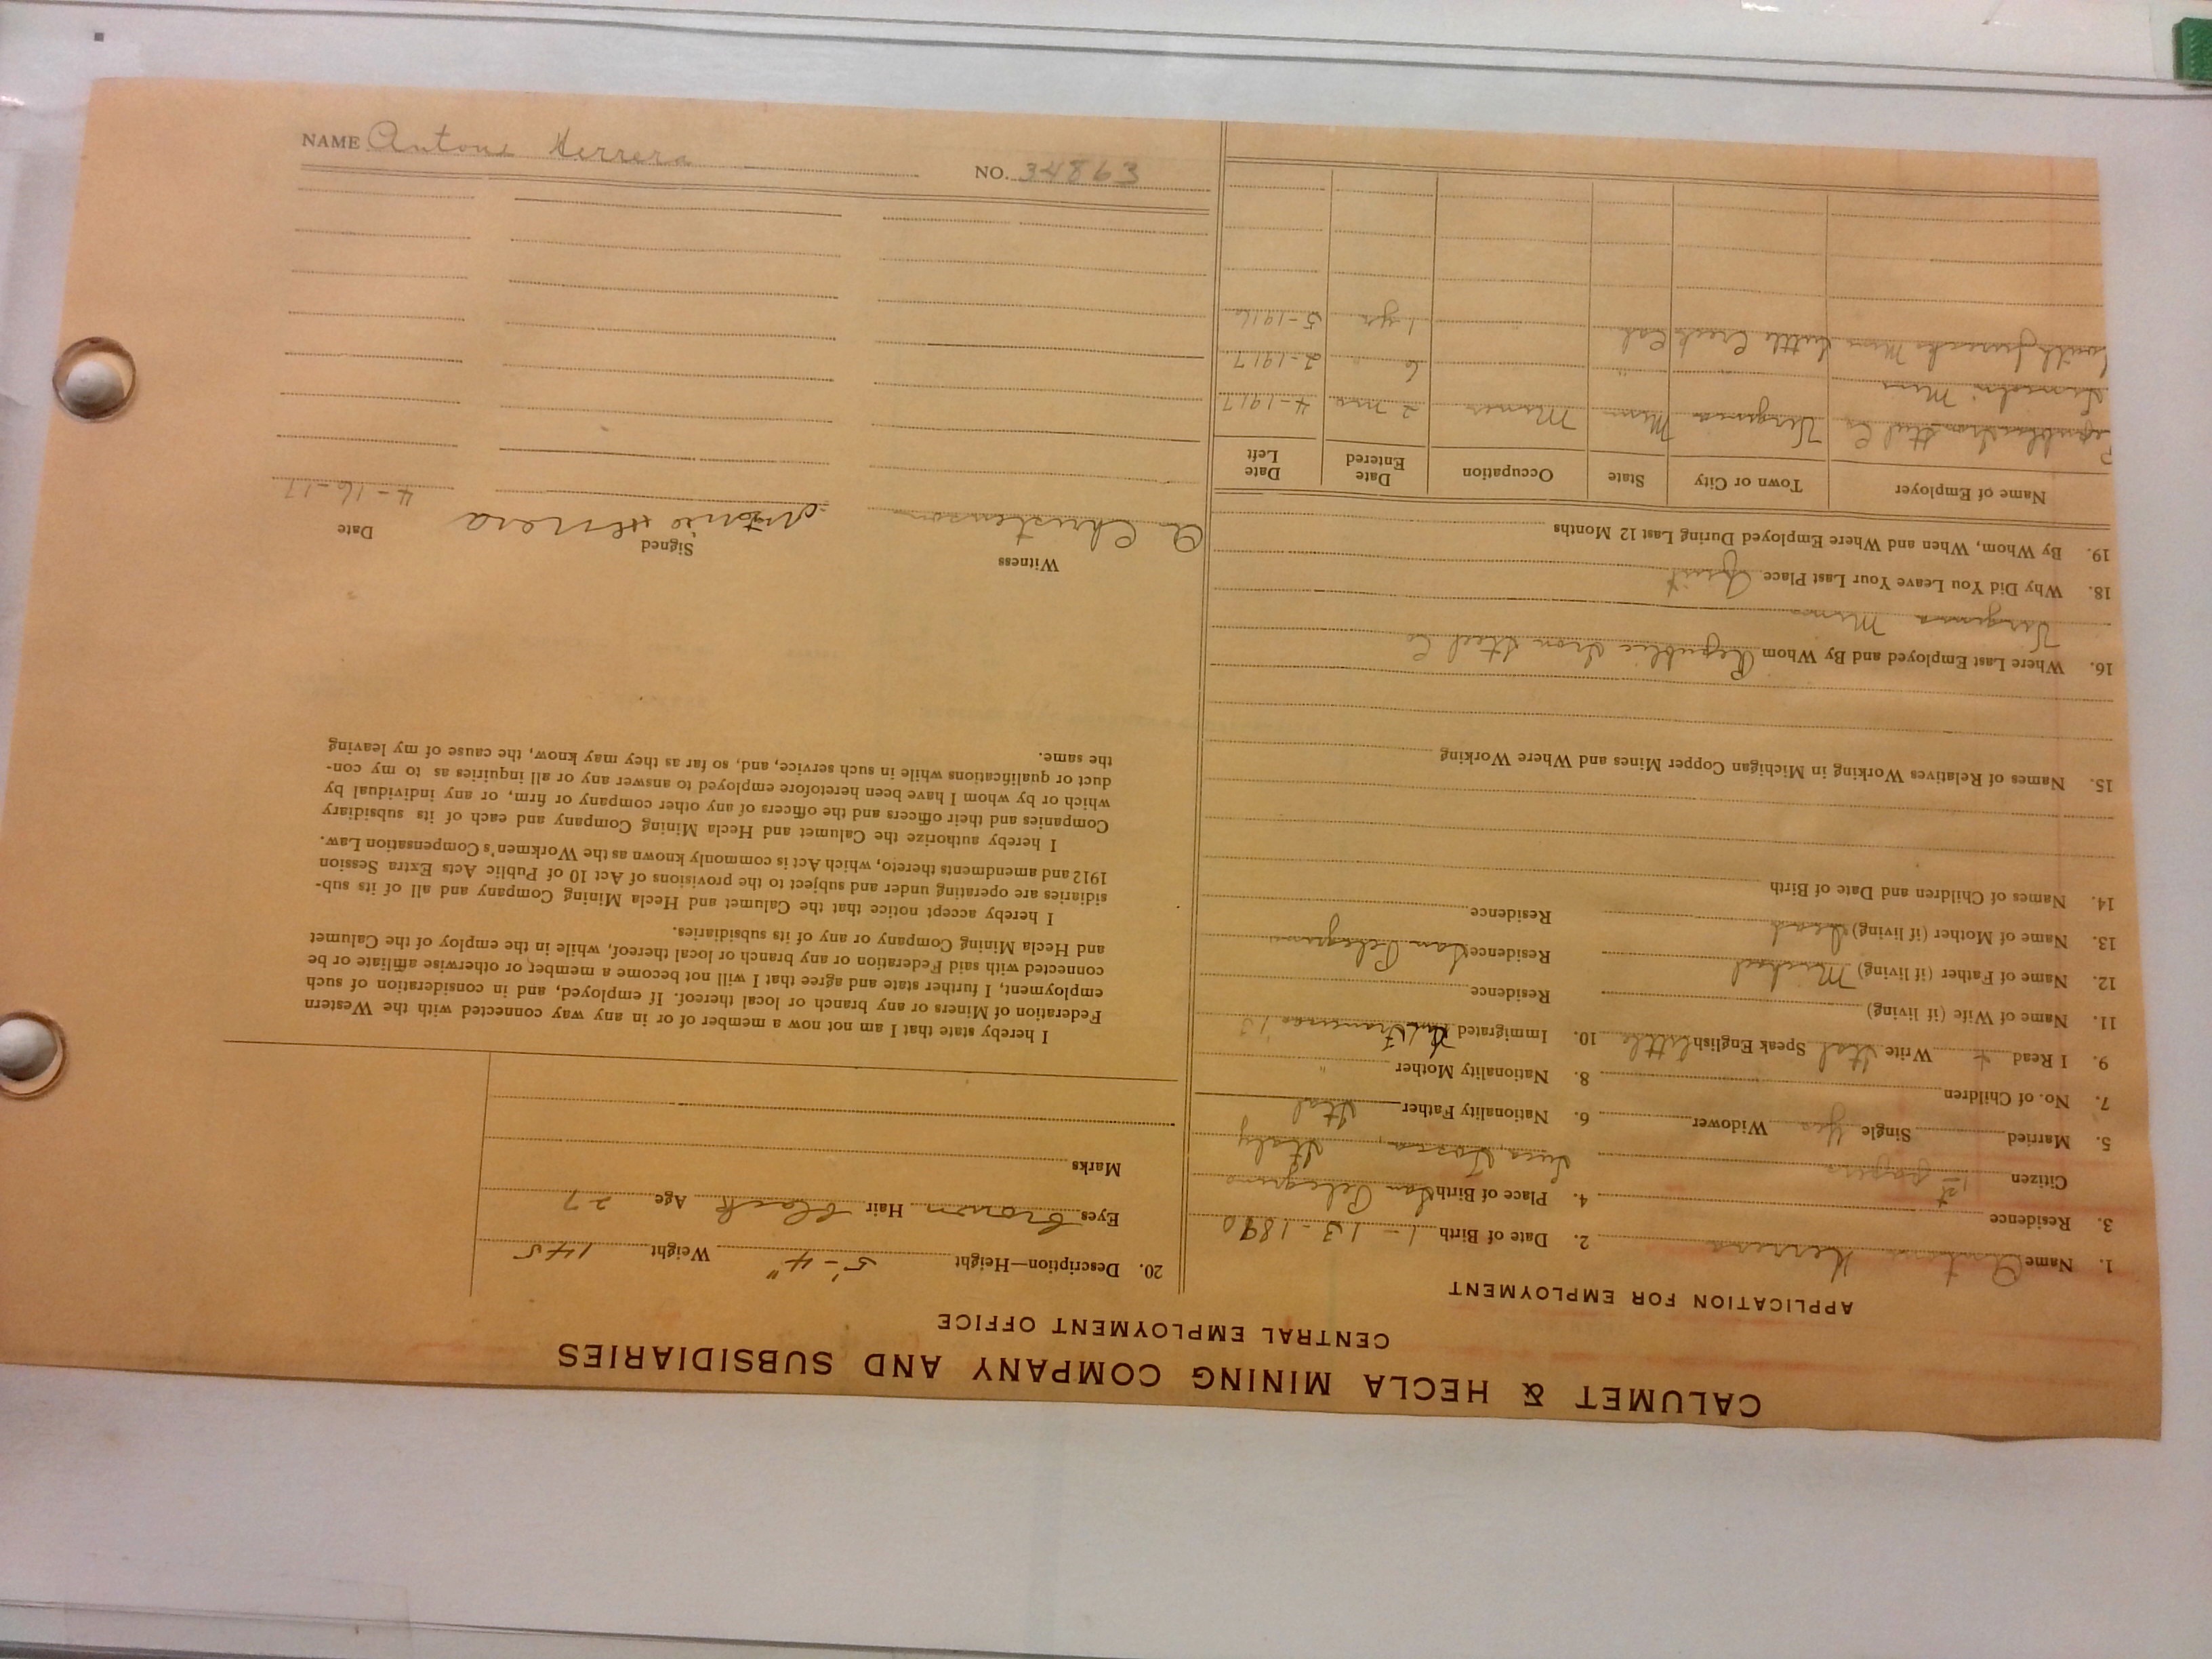 CALUMET & HECLA MINING COMPANY AND SUBSIDIARIES
CENTRAL EMPLOYMENT OFFICE
APPLICATION FOR EMPLOYMENT
1. Name Antone Herrera 2. Date of Birth 1-13-1890
3. Residence 4. Place of Birth San Pelegrino
Citizen 1st papers Italy
5. Married Single Yes Widower 6. Nationality Father Ital
7. No. of Children 8. Nationality Mother "
9. I Read + Write Ital Speak English little 10. Immigrated
11. Name of Wife (if living) Residence
12. Name of Father (if living) Michael Residence San Pelegrino
13. Name of Mother (if living) Dead Residence
14. Names of Children and Date of Birth
15. Names of Relatives Working in Michigan Copper Mines and Where Working
16. Where Last Employed and By Whom Republic Iron Steel Co
Virginia Minn
18. Why Did You Leave Your Last Place Quit
19. By Whom, When and Where Employed During Last 12 Months
Name of Employer Town or City State Occupation Date Entered Date Left
Republic Iron Steel Co Virginia Minn Miner 2 mos 4-1917
Mine " " 6 " 2-1917
Mine Creek Cal 1 yr 5-1916
20. Description—Height 5'-4" Weight 145
Eyes brown Hair black Age 27
Marks
I hereby state that I am not now a member of or in any way connected with the Western
Federation of Miners or any branch or local thereof. If employed, and in consideration of such
employment, I further state and agree that I will not become a member, or otherwise affiliate or be
connected with said Federation or any branch or local thereof, while in the employ of the Calumet
and Hecla Mining Company or any of its subsidiaries.
I hereby accept notice that the Calumet and Hecla Mining Company and all of its sub-
sidiaries are operating under and subject to the provisions of Act 10 of Public Acts Extra Session
1912 and amendments thereto, which Act is commonly known as the Workmen's Compensation Law.
I hereby authorize the Calumet and Hecla Mining Company and each of its subsidiary
Companies and their officers and the officers of any other company or firm, or any individual by
which or by whom I have been heretofore employed to answer any or all inquiries as to my con-
duct or qualifications while in such service, and, so far as they may know, the cause of my leaving
the same.
Witness Signed Date
A Christenson Antonio Herrera 4-16-17
NAME Antone Herrera NO. 34863